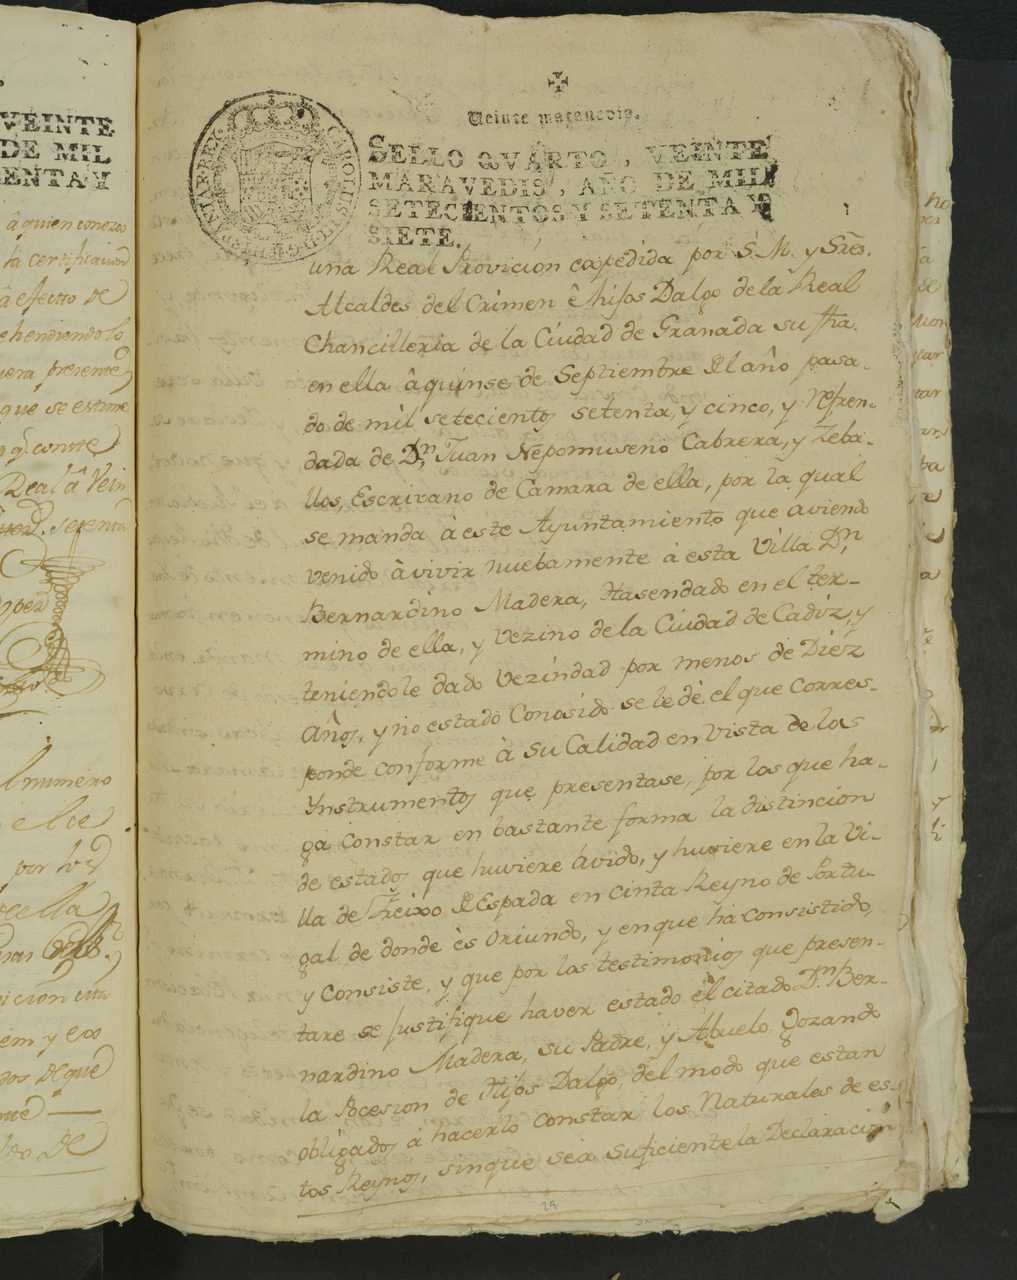 VEINTE
DE MIL
ENTA Y
â quien conozco
la certificacion
â efecto de
ehendiendolo
uera presente
que se estime
conste
Real â Vein
Setenta
l numero
el de
por los
de ella
dicion
em y
dos de que
CAROLUS III D G HISPANIAR REX
Veinte maravedis.
SELLO QVARTO, VEINTE
MARAVEDIS, AÑO DE MIL
SETECIENTOS Y SETENTA Y
SIETE.
una Real Provicion expedida por S. M. y Sres.
Alcaldes del Crimen ê hijos Dalgo de la Real
Chancilleria de la Ciudad de Granada su fha.
en ella âquinse de Septiembre del año pasa-
do de mil setecientos setenta, y cinco, y Refren-
dada de Dn. Juan Nepomuseno Cabrera, y Zeba-
llos, Escrivano de Camara de ella, por la qual
se manda à este Ayuntamiento que aviendo
venido à vivir nuebamente á esta Villa Dn.
Bernardino Madera, Hasendado en el ter-
mino de ella, y Vezino de la Ciudad de Cadiz, y
teniendole dado Vezindad por menos de Diéz
Años, y no estado Conosido se le dé el que Corres-
ponde conforme à su Calidad en vista de los
Ynstrumentos que presentase, por los que ha-
ga constar en bastante forma la distincion
de estados que huviere ávido, y huviere en la Vi-
lla de Freixo de Espada en cinta Reyno de Portu-
gal de donde ès Oriundo, y en que há consistido,
y Consiste, y que por los testimonios que presen-
tare se Justifique haver estado el citado Dn. Ber-
nardino Madera, su Padre, y Abuelo gozando
la Pocesion de Hijos Dalgo, del modo que estan
obligados á hacerlo Constar los Naturales de es-
tos Reynos, sinque sea suficiente la Declaracion
29